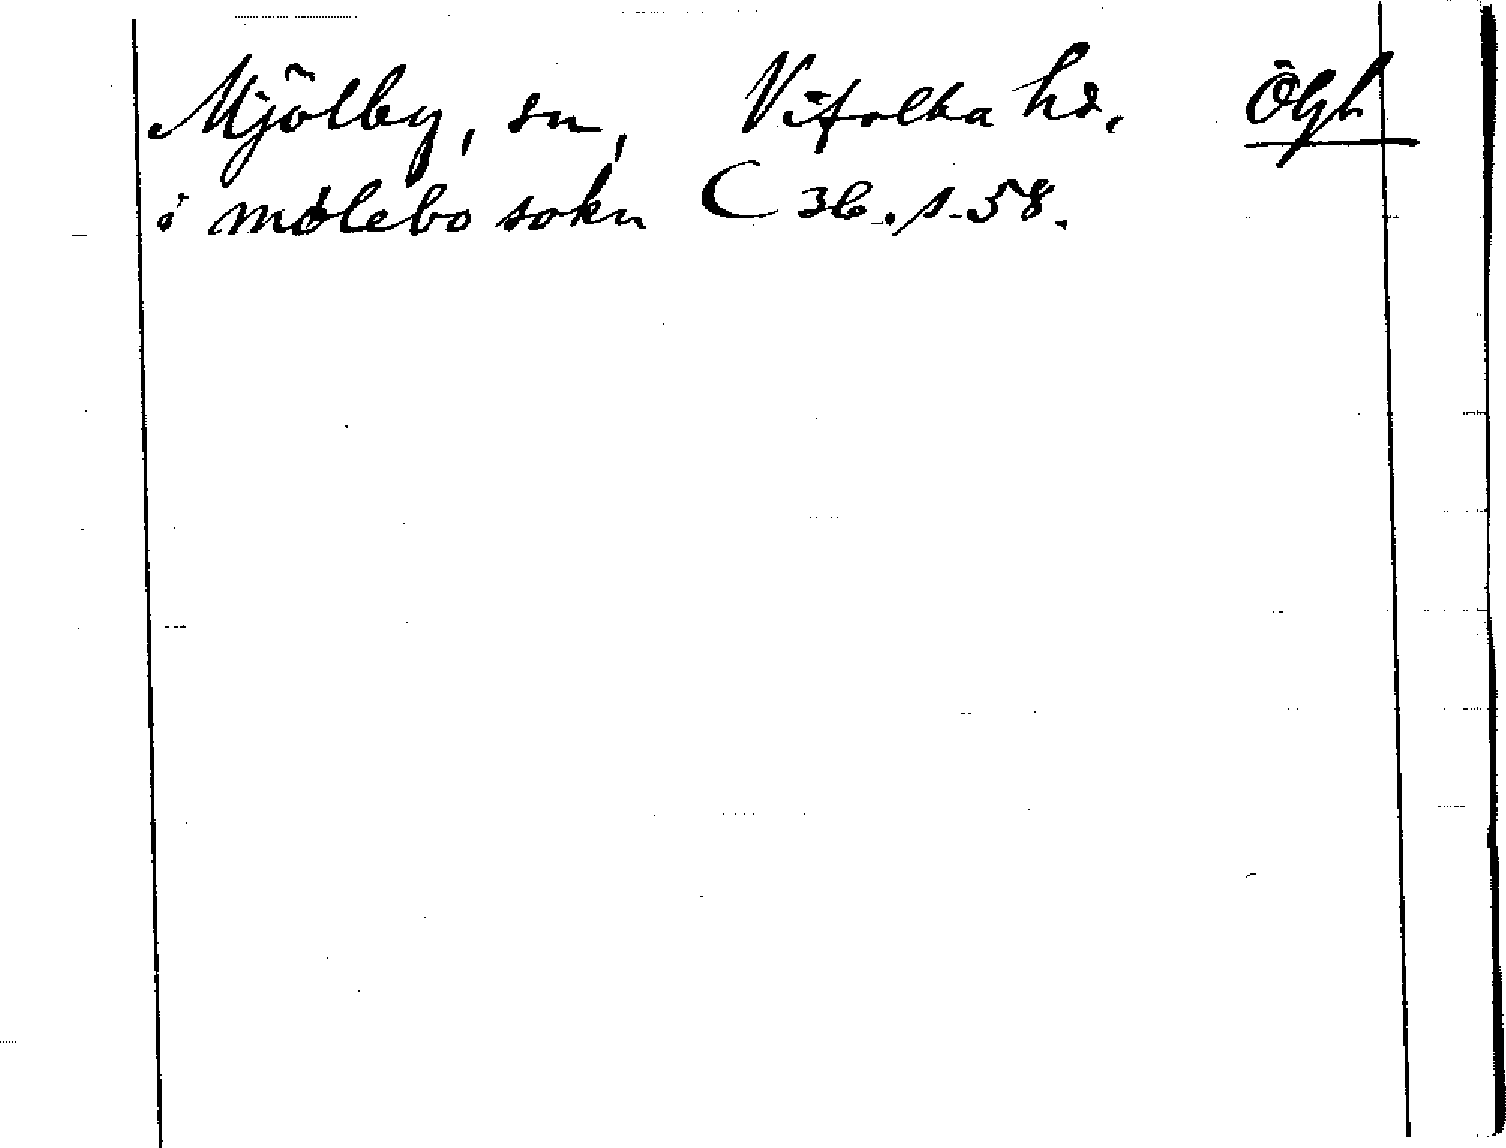 Mjölby, sn, Vifolka hd. Ögl
i mølebo sokn C 36. s. 58.